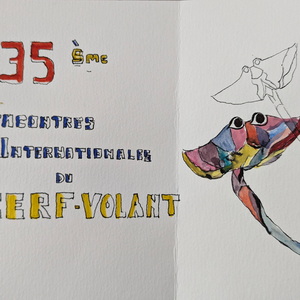 35 ème
RENCONTRES
INTERNATIONALES
DU
CERF-VOLANT